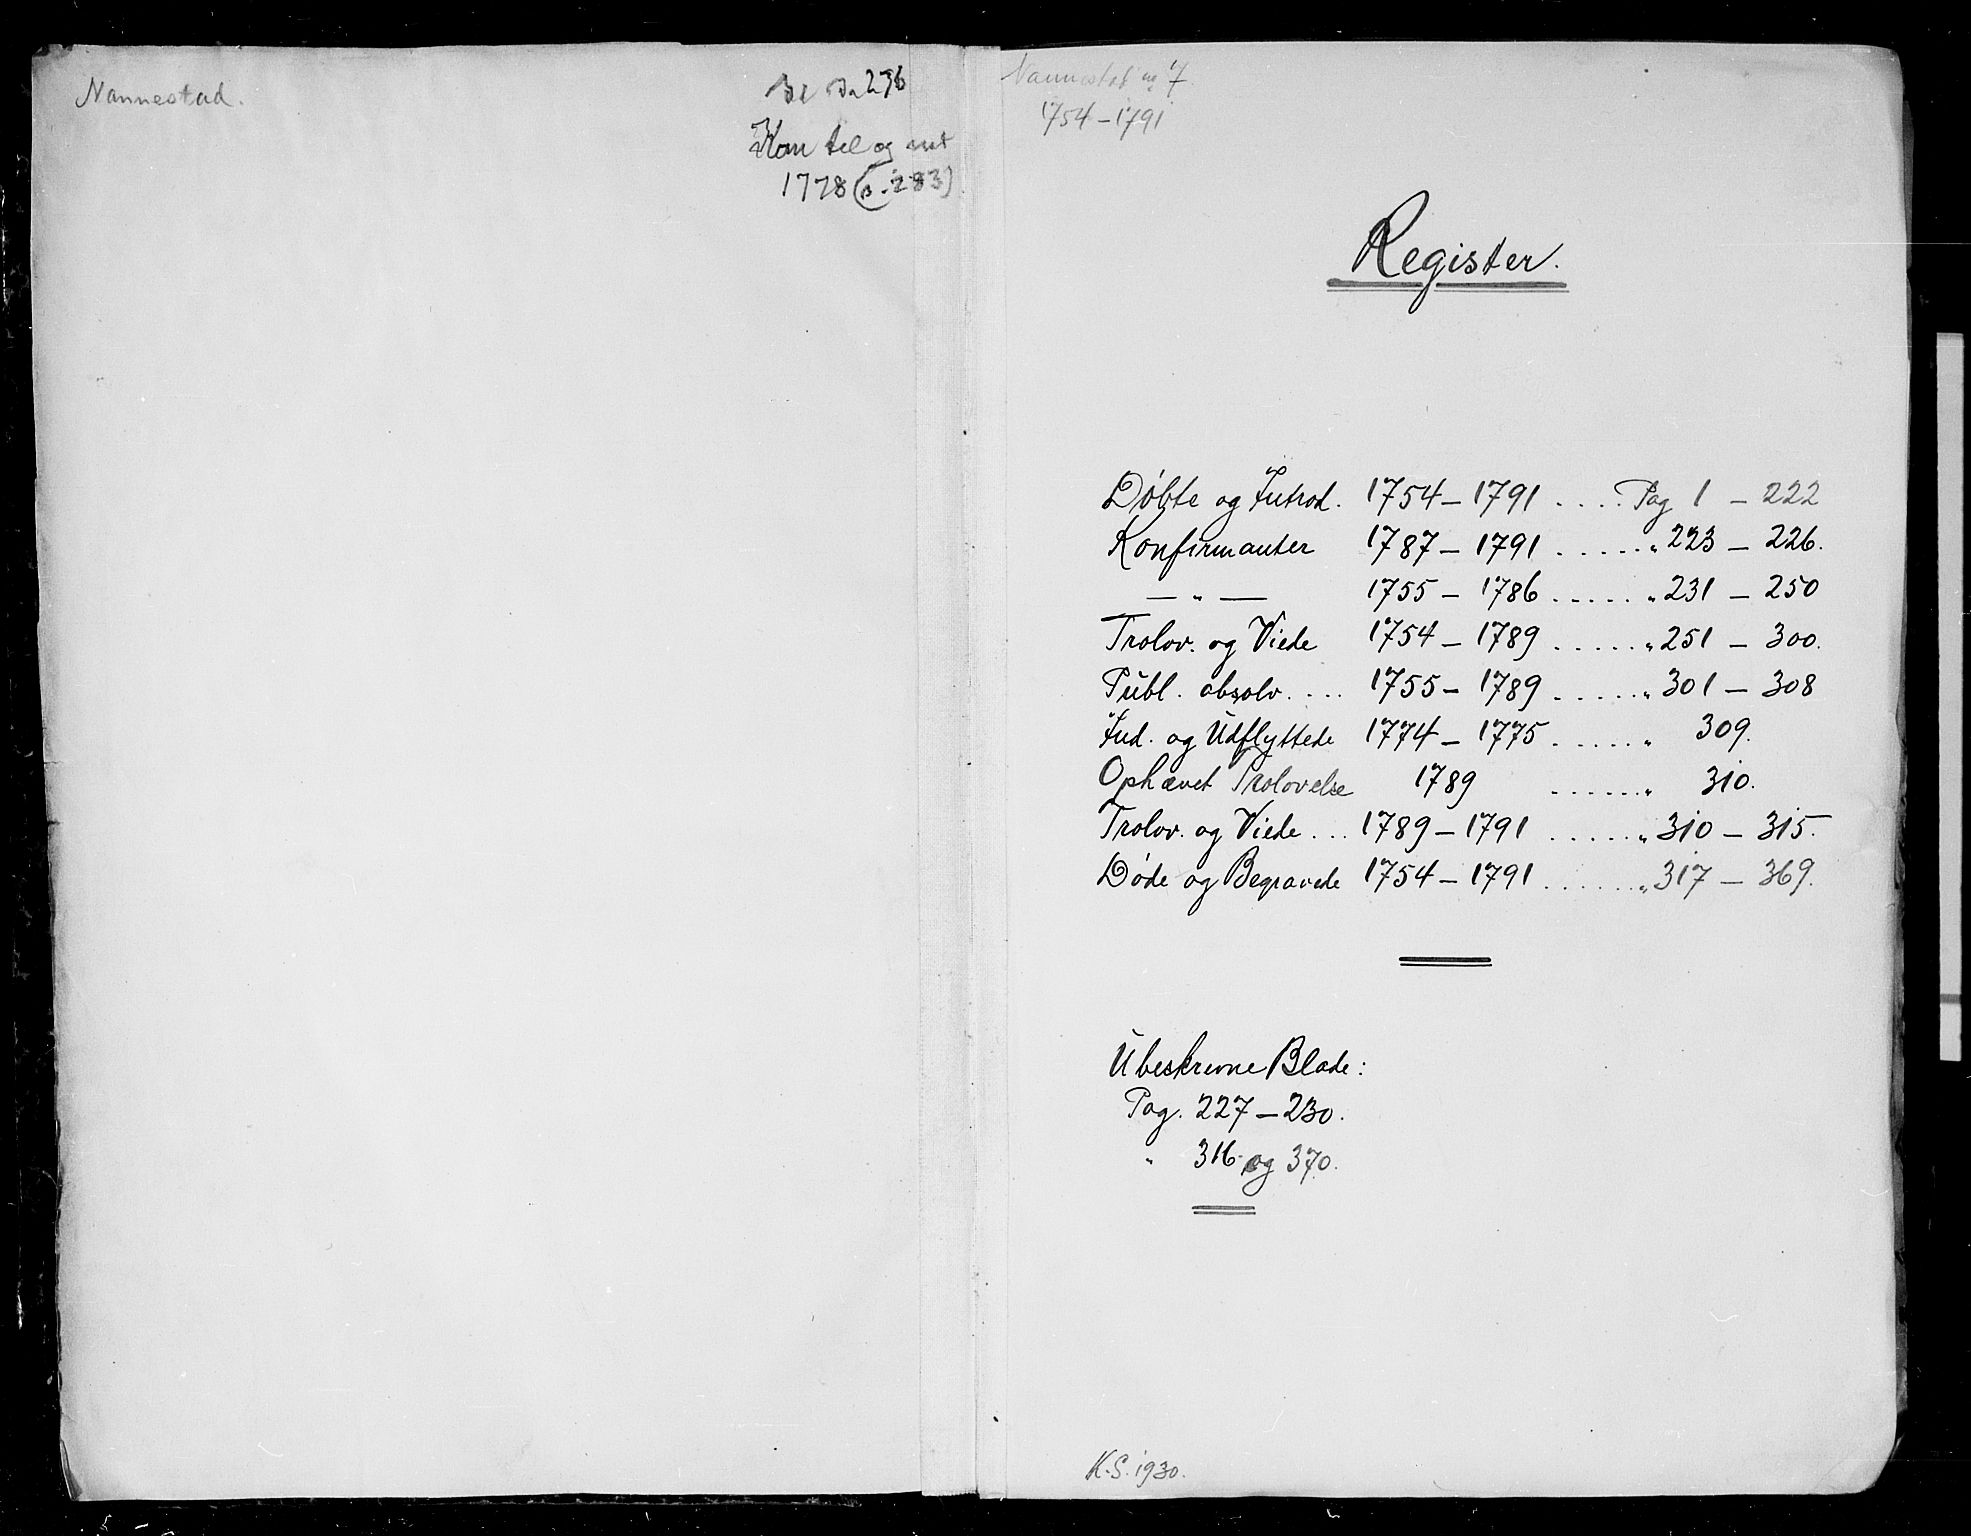 Nannestad.
236
Kom til og mt
1778 (s. 283)
Nannestad nr 7.
1754-1791
Register.
Døbte og Introd. 1754-1791 .... Pag 1 - 222
Konfirmanter 1787-1791 ..... " 223 - 226.
— " — 1755 - 1786 ..... " 231 - 250
Trolov. og Viede 1754 - 1789 ..... " 251 - 300.
Publ. absolv. ... 1755 - 1789 ..... " 301 - 308
Ind. og Udflyttede 1774 - 1775 ..... " 309.
Ophævet Trolovelse 1789 ...... " 310.
Trolov. og Viede ... 1789 - 1791 ..... " 310 - 315.
Døde og Begravede 1754 - 1791 ...... " 317 - 369.
Ubeskrevne Blade:
Pag. 227 - 230.
" 316 og 370.
K.S. 1930.